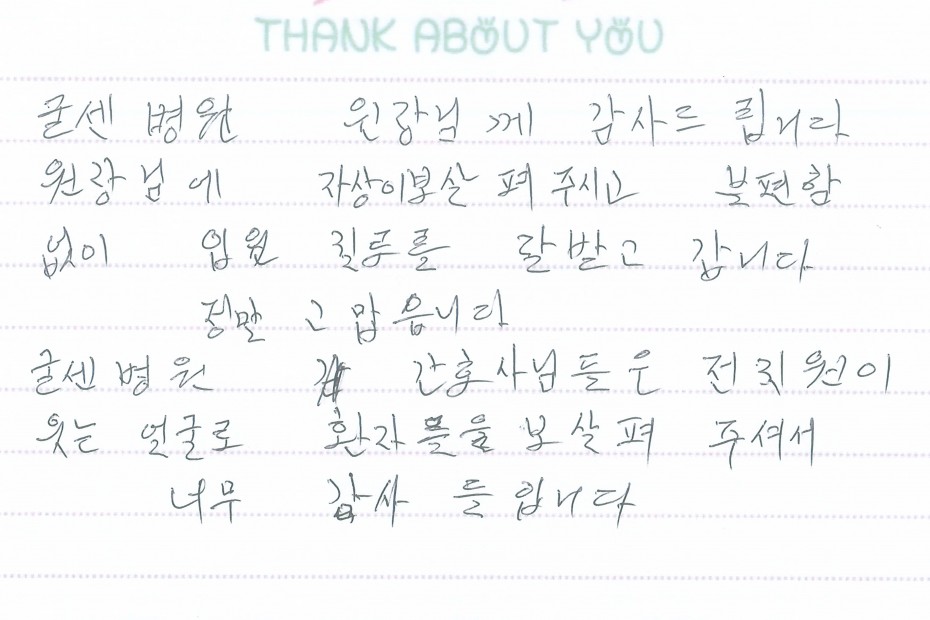 THANK ABOUT YOU
굳센 병원 원장님께 감사드립니다
원장님에 자상이보살펴 주시고 불편함
없이 입원 진료를 잘받고 갑니다
정말 고맙읍니다
굳센병원 간호사님들은 전직원이
웃는 얼굴로 환자들을 보살펴 주셔서
너무 감사 들입니다